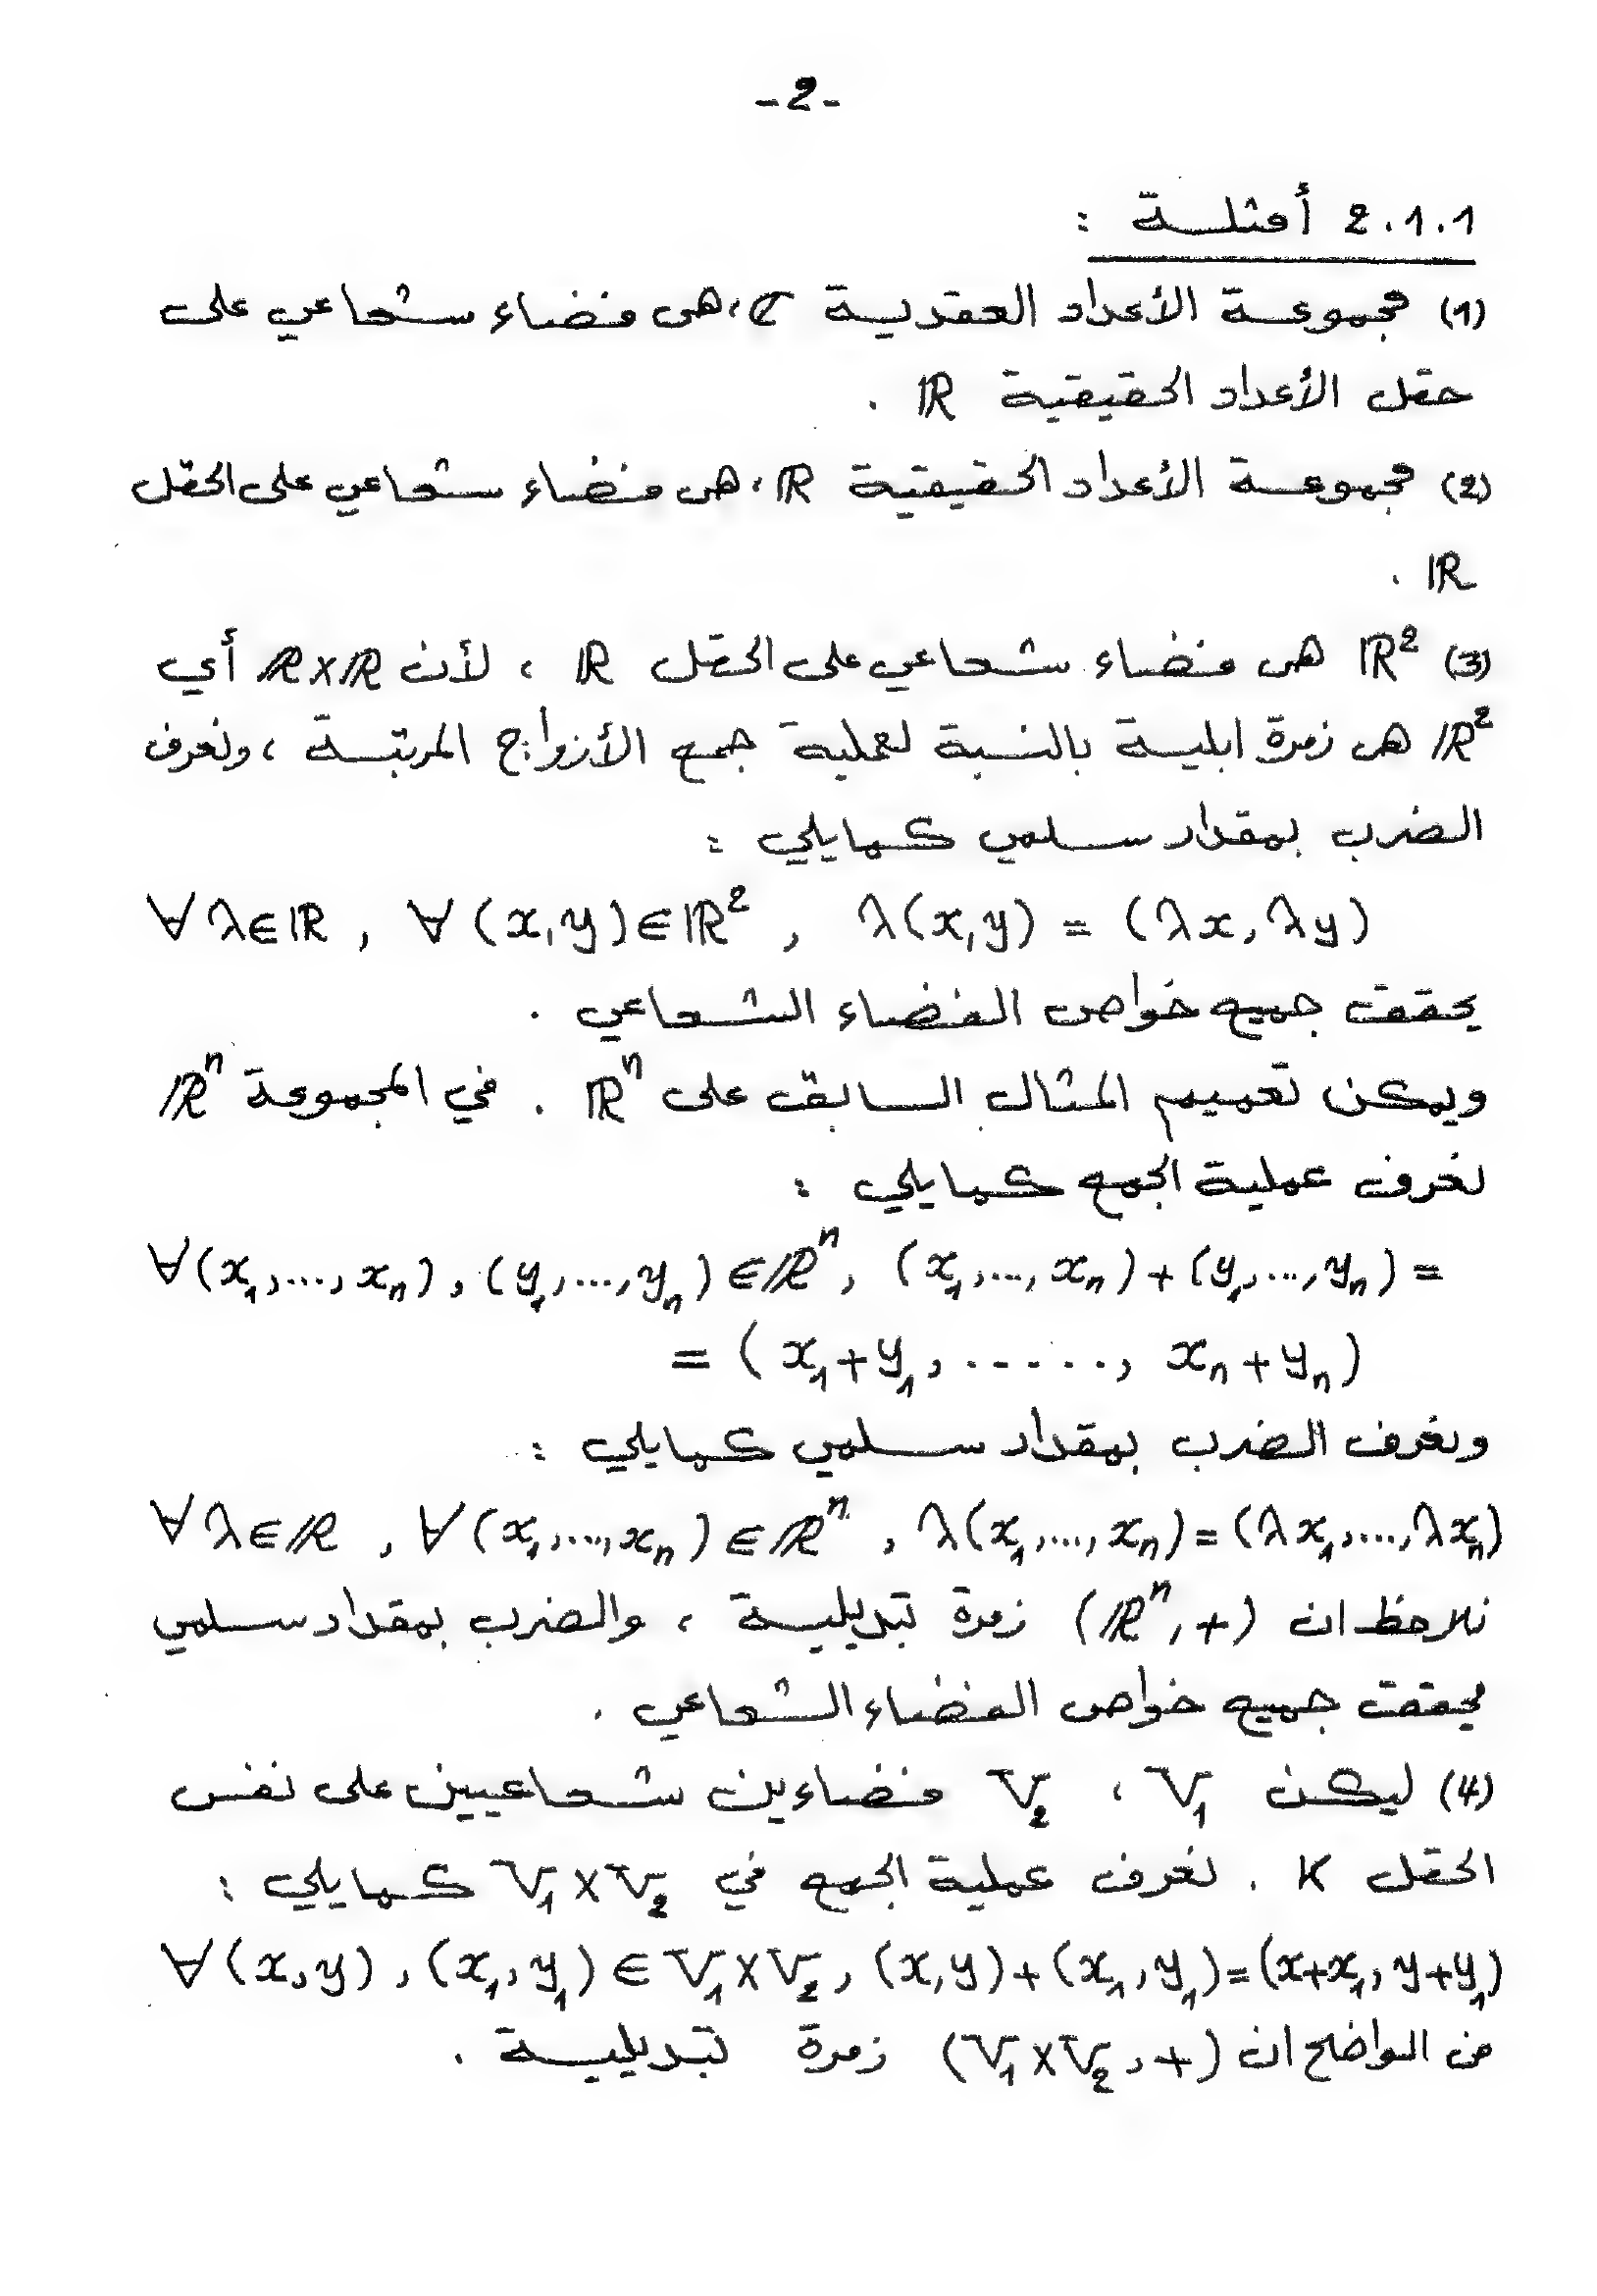 -2-
2.1.1 أمثلة :
(1) مجموعة الأعداد العقدية ℂ، هي فضاء شعاعي على
حقل الأعداد الحقيقية ℝ .
(2) مجموعة الأعداد الحقيقية ℝ، هي فضاء شعاعي على الحقل
ℝ .
(3) ℝ² هي فضاء شعاعي على الحقل ℝ ، لأن ℝ×ℝ أي
ℝ² هي زمرة ابلية بالنسبة لعملية جمع الأزواج المرتبة ، ونعرف
الضرب بمقدار سلمي كمايلي :
∀λ∈ℝ , ∀(x,y)∈ℝ² , λ(x,y) = (λx, λy)
يحقق جميع خواص الفضاء الشعاعي .
ويمكن تعميم المثال السابق على ℝⁿ . في المجموعة ℝⁿ
نعرف عملية الجمع كمايلي :
∀(x₁,...,xₙ), (y₁,...,yₙ)∈ℝⁿ, (x₁,...,xₙ)+(y₁,...,yₙ) =
= (x₁+y₁, ......, xₙ+yₙ)
ونعرف الضرب بمقدار سلمي كمايلي :
∀λ∈ℝ , ∀(x₁,...,xₙ)∈ℝⁿ , λ(x₁,...,xₙ)=(λx₁,...,λxₙ)
نلاحظ ان (ℝⁿ,+) زمرة تبديلية ، والضرب بمقدار سلمي
يحقق جميع خواص الفضاء الشعاعي .
(4) ليكن V₁ ، V₂ فضاءين شعاعيين على نفس
الحقل K . نعرف عملية الجمع في V₁×V₂ كمايلي :
∀(x,y), (x₁,y₁)∈V₁×V₂, (x,y)+(x₁,y₁)=(x+x₁, y+y₁)
من الواضح ان (V₁×V₂,+) زمرة تبديلية .